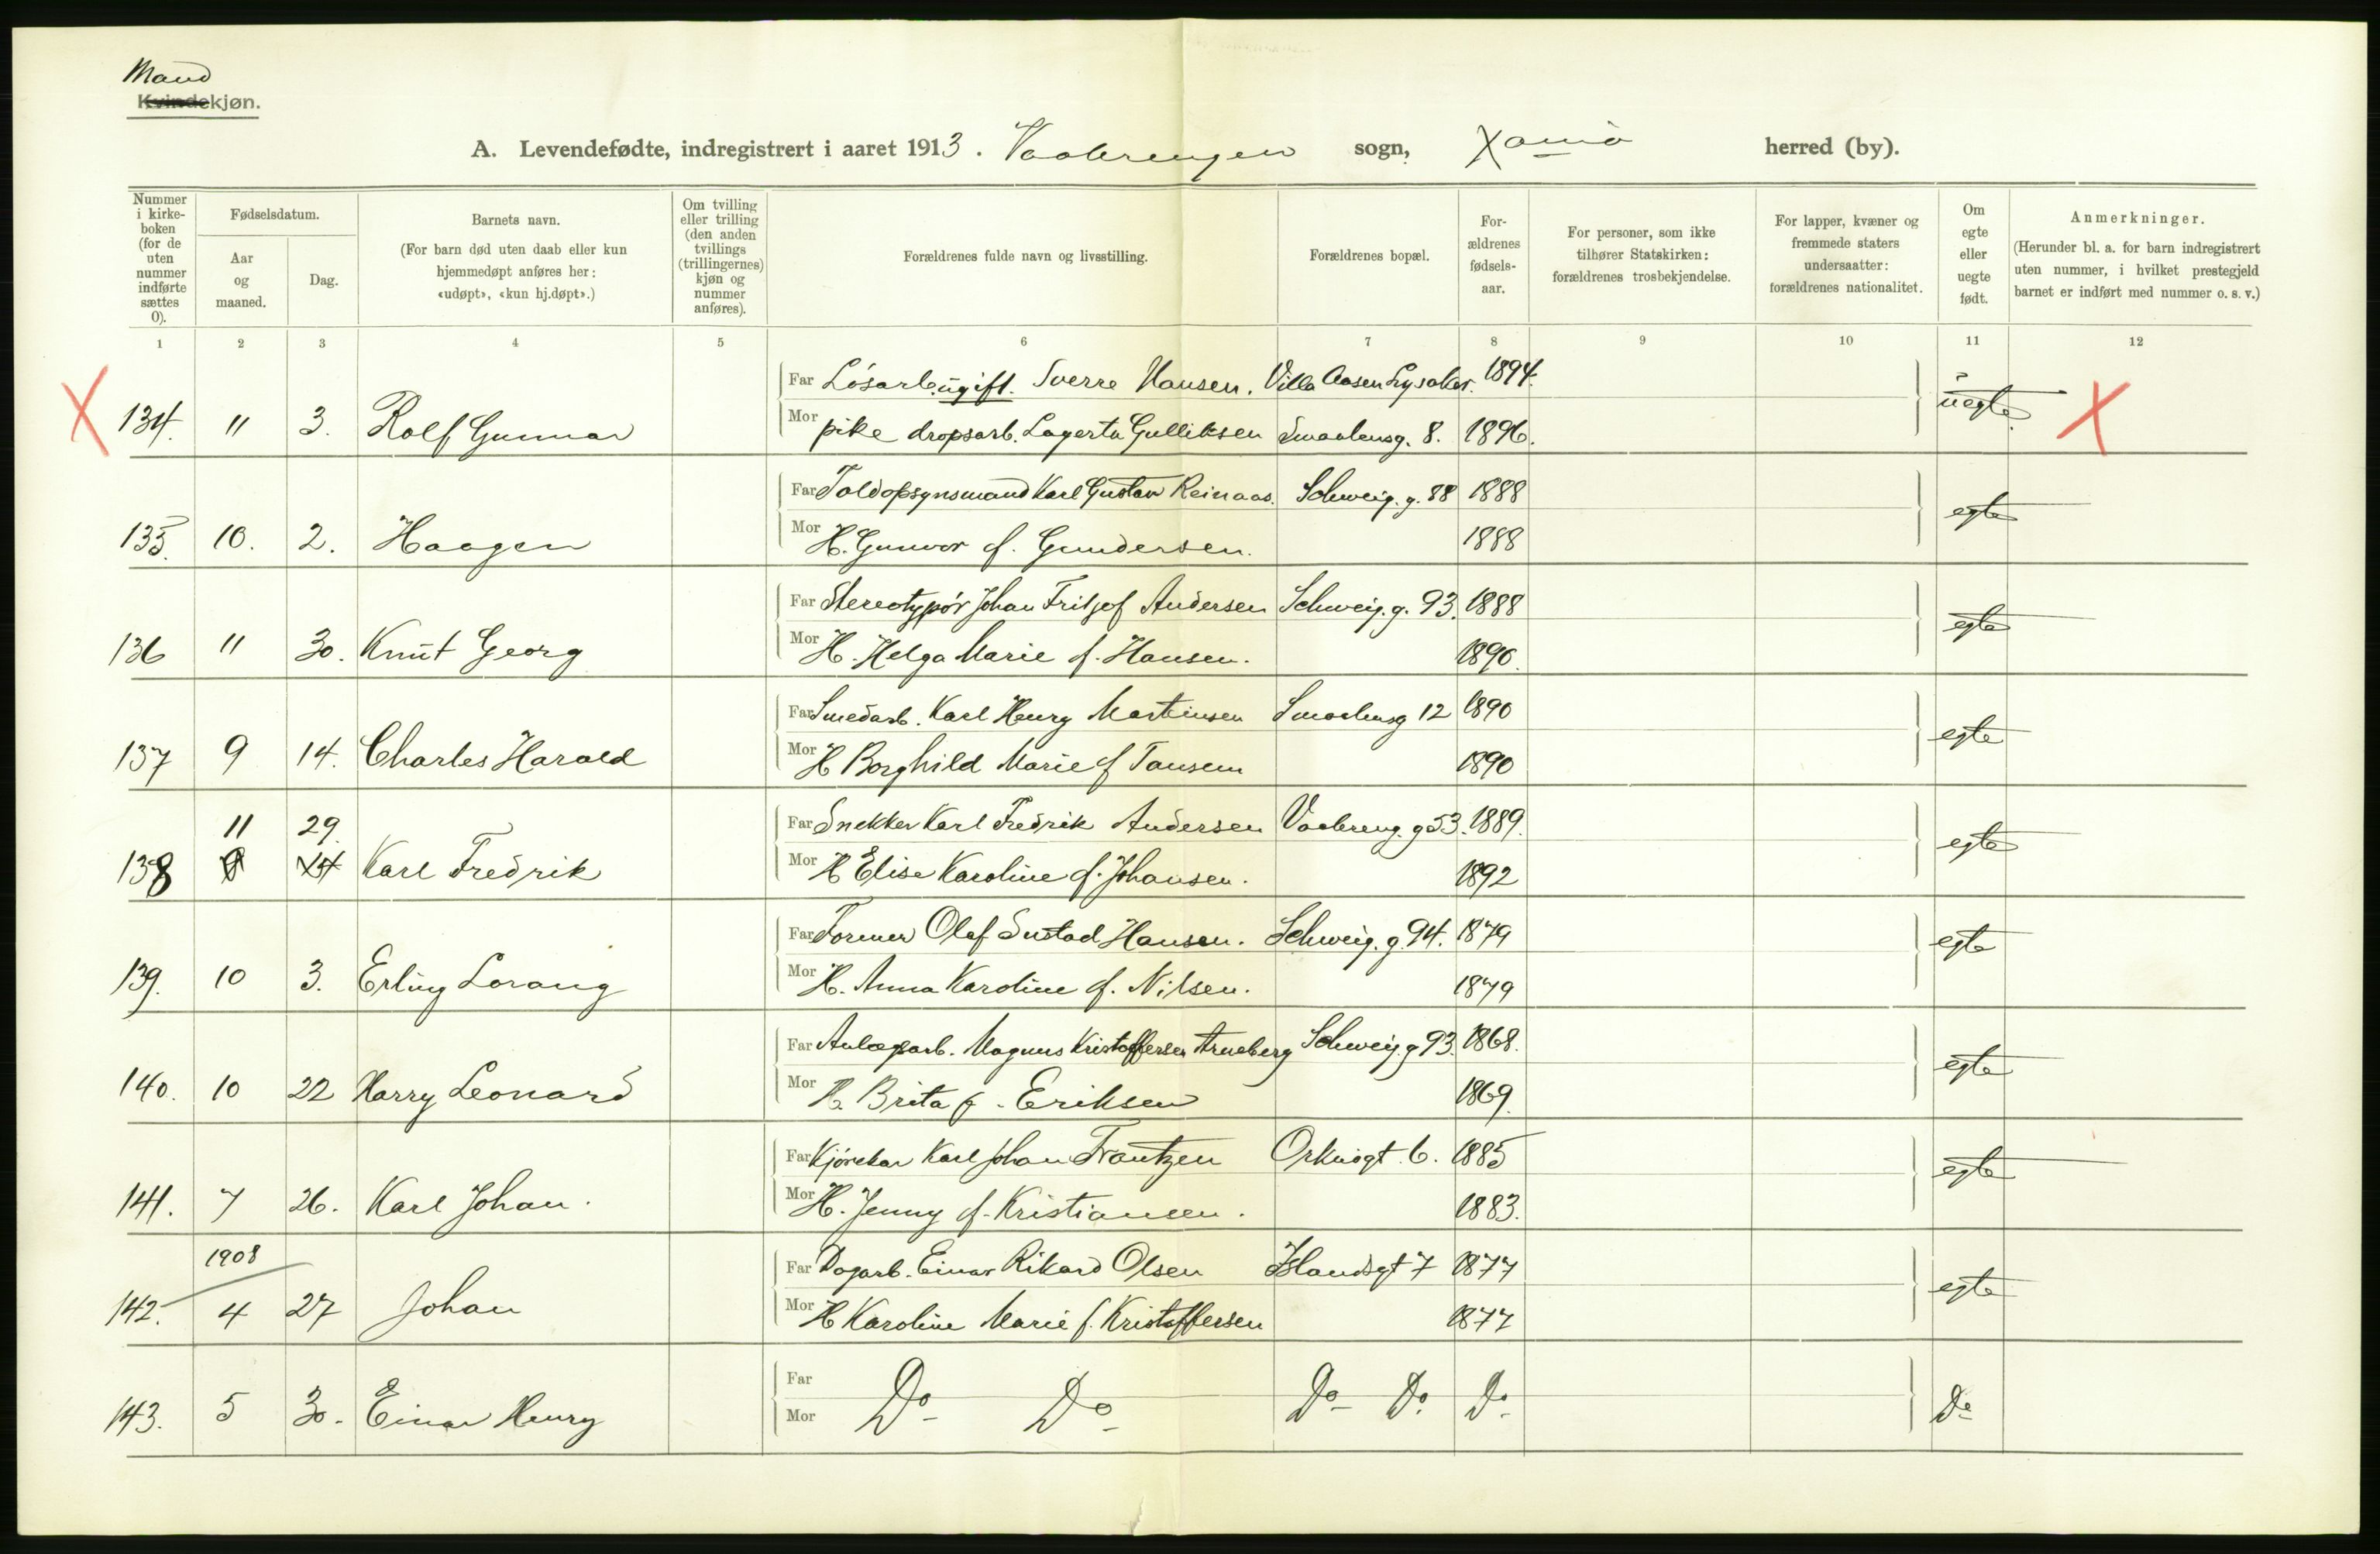 Mand
Kvindekjøn.
A. Levendefødte, indregistrert i aaret 1913. Vaalerengen sogn, Xania herred (by).
Nummer i kirke-boken (for de uten nummer indførte sættes 0).
Fødselsdatum.
Aar og maaned.
Dag.
Barnets navn.
(For barn død uten daab eller kun hjemmedøpt anføres her: «udøpt», «kun hj.døpt».)
Om tvilling eller trilling (den anden tvillings (trillingernes) kjøn og nummer anføres).
Forældrenes fulde navn og livsstilling.
Forældrenes bopæl.
For-ældrenes fødsels-aar.
For personer, som ikke tilhører Statskirken: forældrenes trosbekjendelse.
For lapper, kvæner og fremmede staters undersaatter: forældrenes nationalitet.
Om egte eller uegte født.
Anmerkninger.
(Herunder bl. a. for barn indregistrert uten nummer, i hvilket prestegjeld barnet er indført med nummer o. s. v.)
1 2 3 4 5 6 7 8 9 10 11 12
Far Løsarb. ugift. Sverre Hansen. Villa Aasen Lysaker. 1894.
X 134. 11 3. Rolf Gunnar Mor pike dropsarb. Lagerta Gulliksen Smaalensg. 8. 1896. uegte X
Far Toldopsynsmand Karl Gustav Reinaas. Schweig. g. 88 1888
135. 10. 2. Haagen Mor H. Gunvor f. Gundersen. 1888 egte
Far Stereotypør Johan Fritjof Andersen Schweig. g. 93. 1888
136 11 30. Knut Georg Mor H. Helga Marie f. Hansen. 1890. egte
Far Smedarb. Karl Henry Martinsen Smaalensg 12 1890
137 9 14. Charles Harald Mor H Borghild Marie f Tansem 1890 egte
11 29. Far Snekker Karl Fredrik Andersen Vaalereng. g 53. 1889.
138 9 14 Karl Fredrik Mor H Elise Karoline f. Johansen. 1892 egte
Far Former Olaf Sustad Hansen. Schweig. g. 94. 1879
139. 10 3. Erling Lorang Mor H. Anna Karoline f. Nilsen. 1879 egte
Far Anlægsarb. Magnus Kristoffersen Arneberg Schweig. g 93. 1868.
140. 10 22 Harry Leonard Mor H. Brita f. Eriksen 1869. egte
Far Kjørekar Karl Johan Frantzen Orknøgt. 6. 1885
141. 7 26. Karl Johan. Mor H. Jenny f. Kristiansen. 1883. egte
1908 Far Dagarb. Einar Rikard Olsen Islandsgt 7 1877
142. 4 27 Johan Mor H Karoline Marie f. Kristoffersen 1877 egte
Far
143. 5 30. Einar Henry Do Do Do Do Do Do
Mor